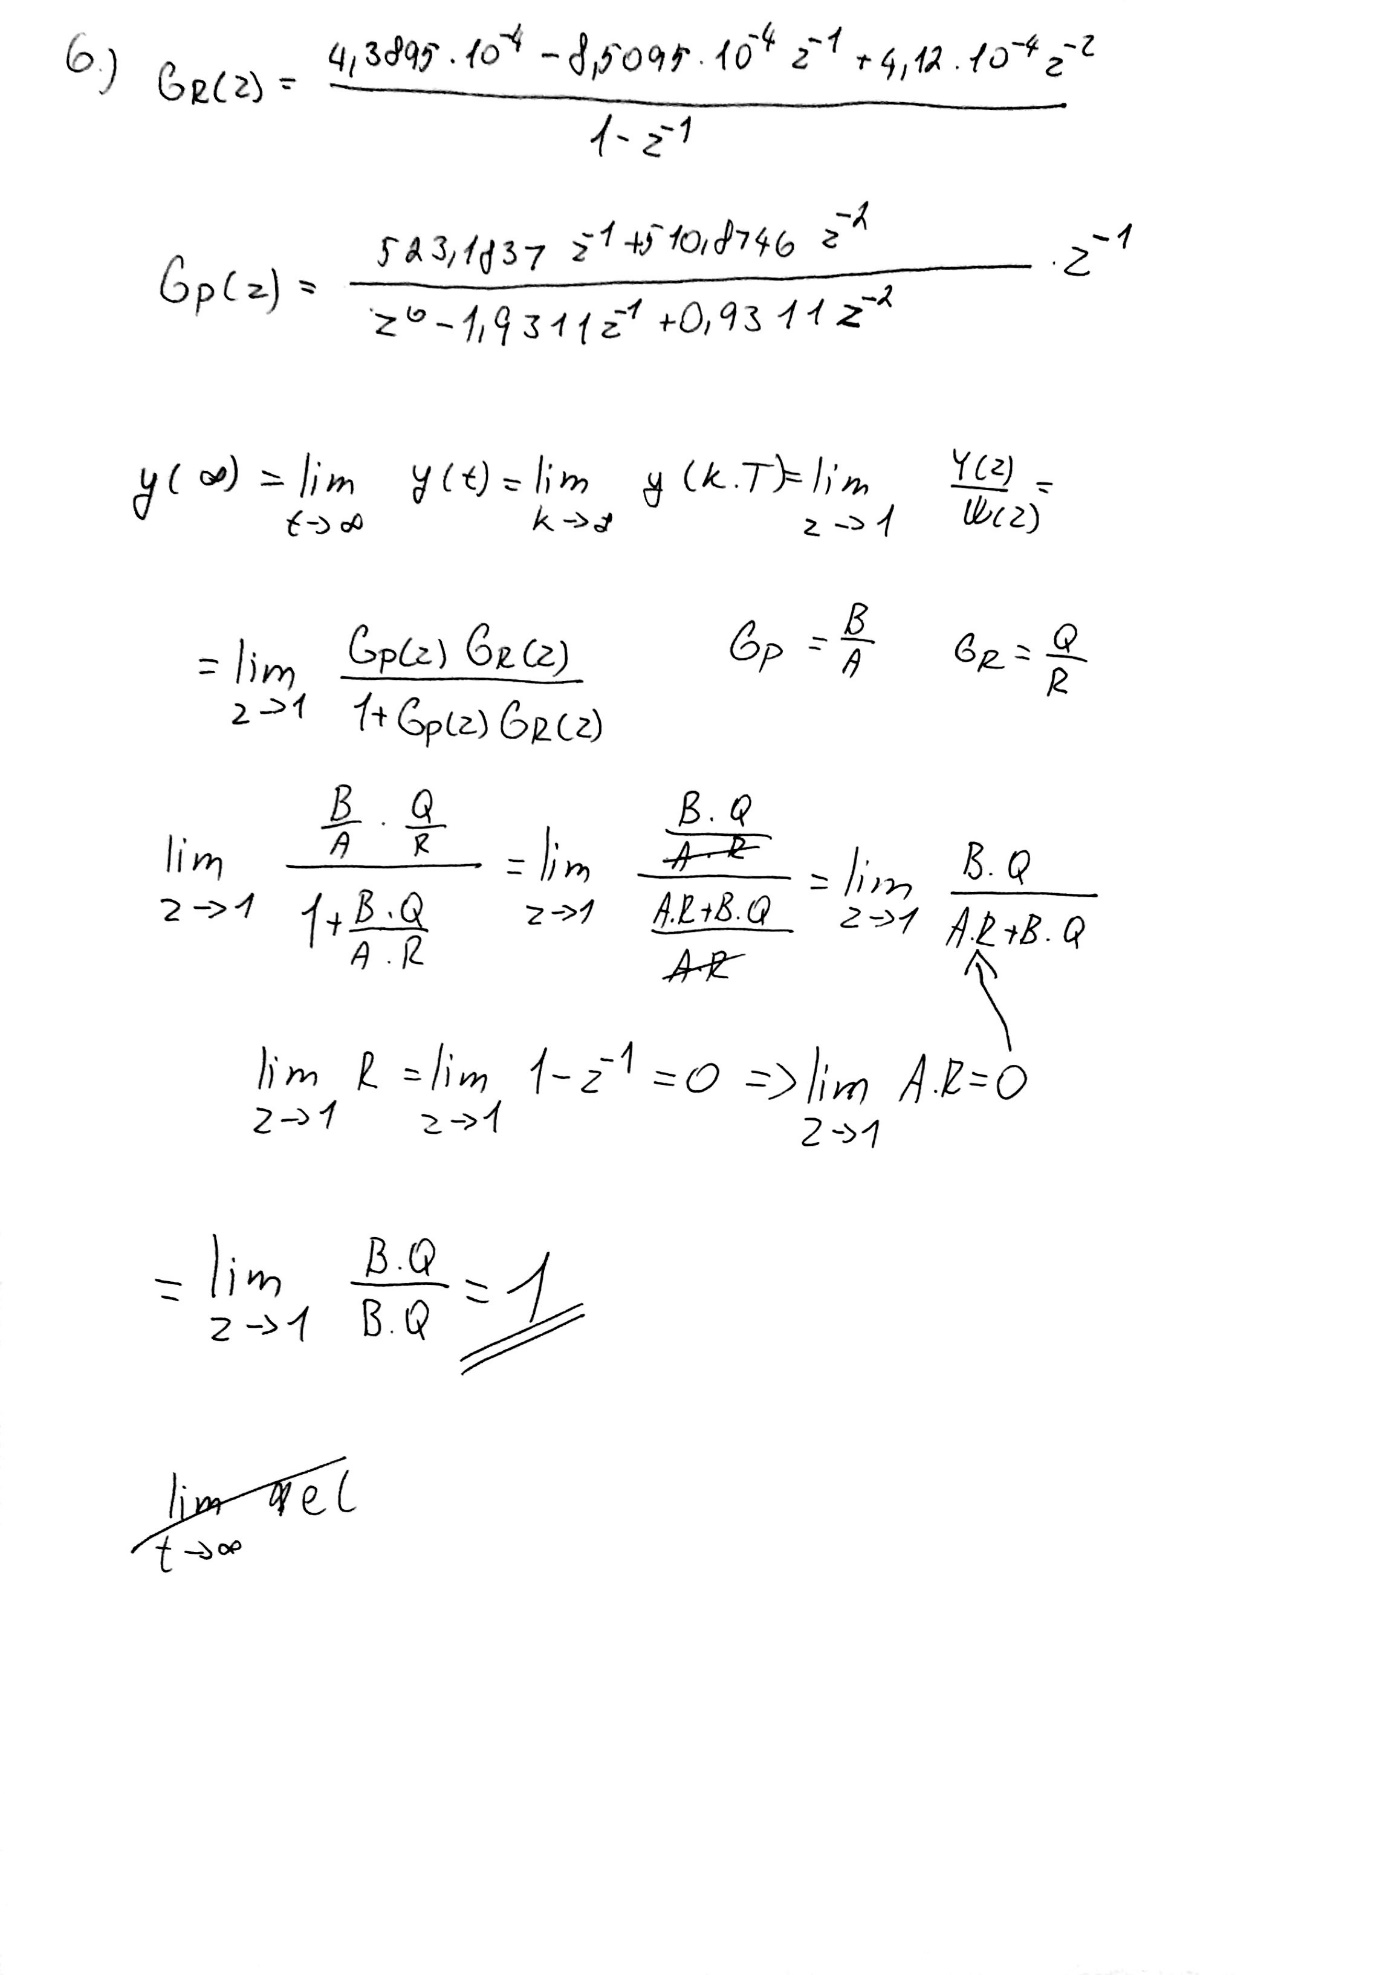 6.) GR(z) = (4,3895 . 10^-4 - 8,5095 . 10^-4 z^-1 + 4,12 . 10^-4 z^-2) / (1 - z^-1)
Gp(z) = (523,1837 z^-1 + 510,8746 z^-2) / (z^0 - 1,9311 z^-1 + 0,9311 z^-2) . z^-1
y(∞) = lim t->∞ y(t) = lim k->∞ y(k.T) = lim z->1 Y(z)/W(z) =
= lim z->1 Gp(z) GR(z) / (1 + Gp(z) GR(z)) Gp = B/A GR = Q/R
lim z->1 (B/A . Q/R) / (1 + B.Q/A.R) = lim z->1 (B.Q/A.R) / ((A.R+B.Q)/A.R) = lim z->1 B.Q / (A.R+B.Q)
lim z->1 R = lim z->1 1 - z^-1 = 0 => lim z->1 A.R = 0
= lim z->1 B.Q / B.Q = 1
lim t->∞